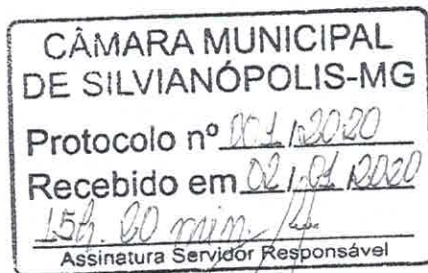 CÂMARA MUNICIPAL
DE SILVIANÓPOLIS-MG
Protocolo nº 001/2020
Recebido em 02/01/2020
15h. 20 min.
Assinatura Servidor Responsável